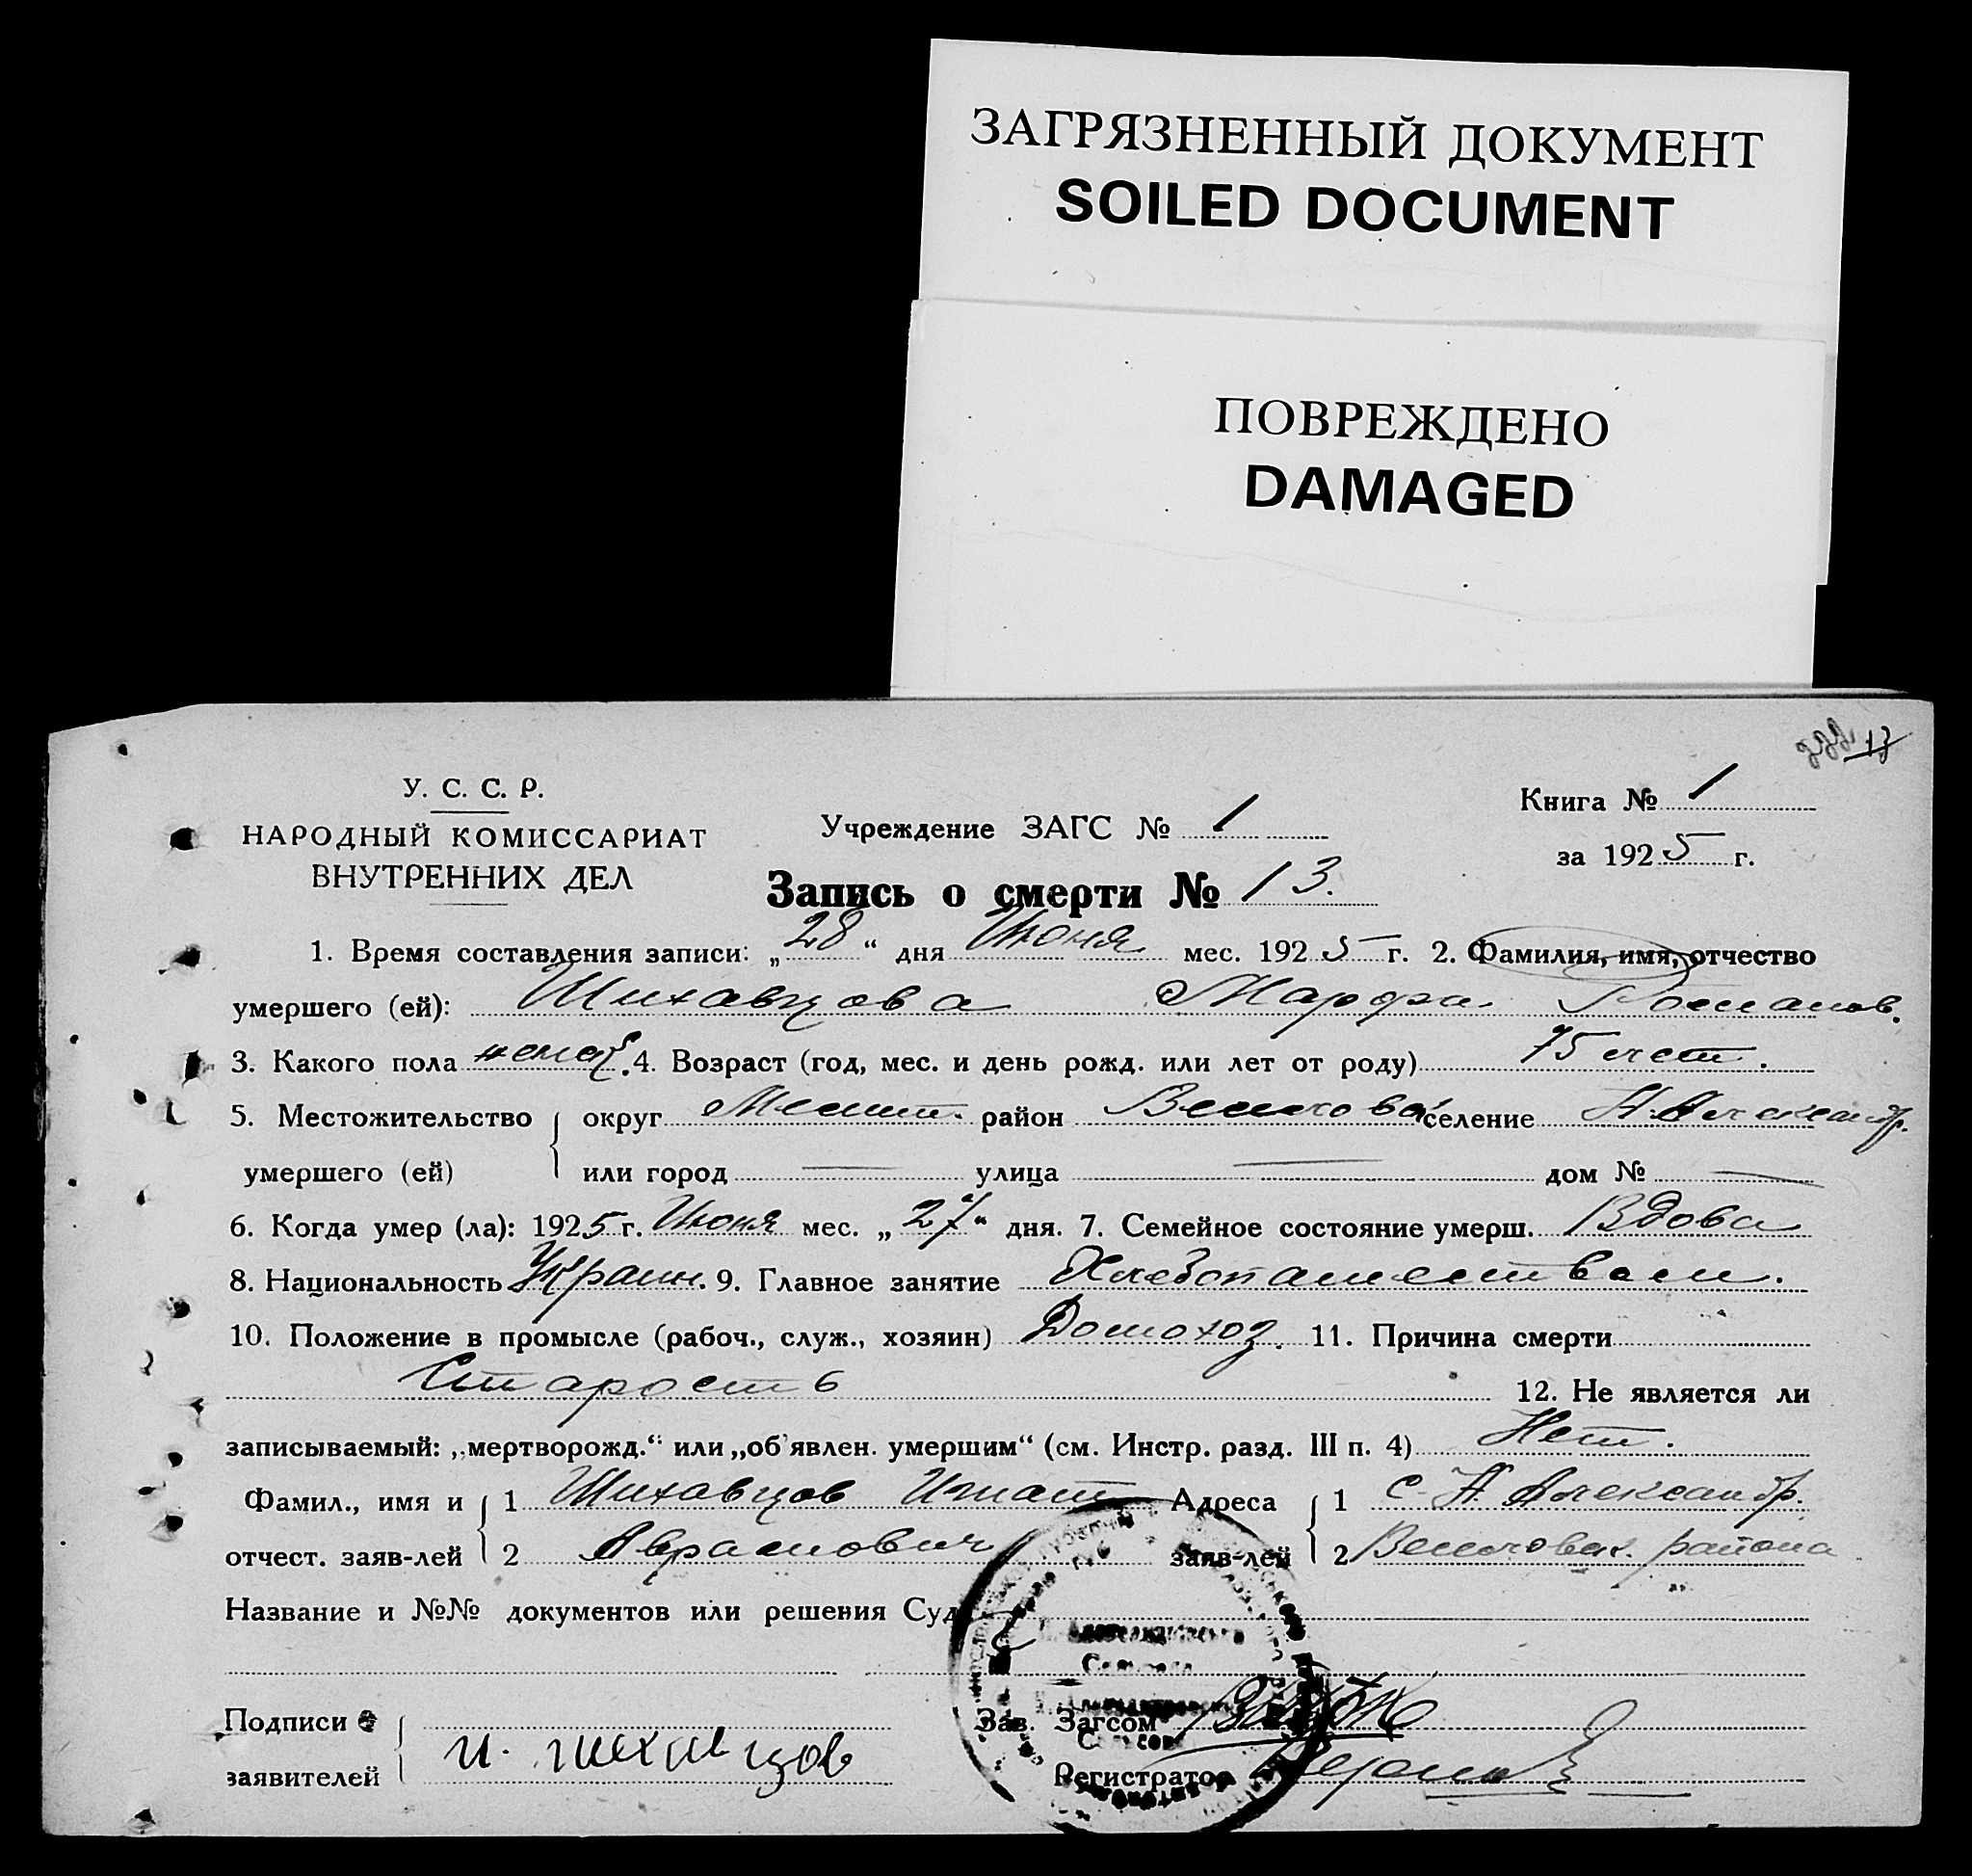 ЗАГРЯЗНЕННЫЙ ДОКУМЕНТ
SOILED DOCUMENT
ПОВРЕЖДЕНО
DAMAGED
13
У. С. С. Р.
НАРОДНЫЙ КОМИССАРИАТ
ВНУТРЕННИХ ДЕЛ
Учреждение ЗАГС № 1
Книга № 1
за 1925 г.
Запись о смерти № 13.
1. Время составления записи: „28“ дня Июня мес. 1925 г. 2. Фамилия, имя, отчество
умершего (ей): Шихавцова Марфа Романов.
3. Какого пола женск. 4. Возраст (год, мес. и день рожд. или лет от роду) 75 лет.
5. Местожительство округ Мелит. район Веселовс селение Н. Александр.
умершего (ей) или город — улица — дом № —
6. Когда умер (ла): 1925 г. Июня мес. „27“ дня. 7. Семейное состояние умерш. Вдова
8. Национальность Украин. 9. Главное занятие Хлебопашеством.
10. Положение в промысле (рабоч., служ., хозяин) Домохоз. 11. Причина смерти
Старость 12. Не является ли
записываемый: „мертворожд.“ или „об'явлен. умершим“ (см. Инстр. разд. III п. 4) Нет.
Фамил., имя и 1 Шихавцов Игнат Адреса 1 с. Н. Александр.
отчест. заяв-лей 2 Аврамович заяв-лей 2 Веселовск. района
Название и №№ документов или решения Суд
Подписи Зав. Загсом
заявителей И. Шихавцов Регистратор